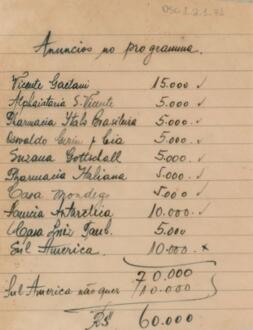 DSC 1.2.1.71
Anuncios no programma.
Vicente Gaetani 15.000 ✓
Alphaiataria S. Vicente 5.000 ✓
Pharmacia Italo Brasileira 5.000 ✓
Oswaldo & Cia 5.000 ✓
Suzana Gottschall 5.000 ✓
Pharmacia Italiana 5.000 ✓
Casa Mondego 5.000 ✓
Antarctica 10.000 ✓
Casa Luiz 5.000
Sul America 10.000 x
70.000
Sul America não quer 10.000
RS 60.000